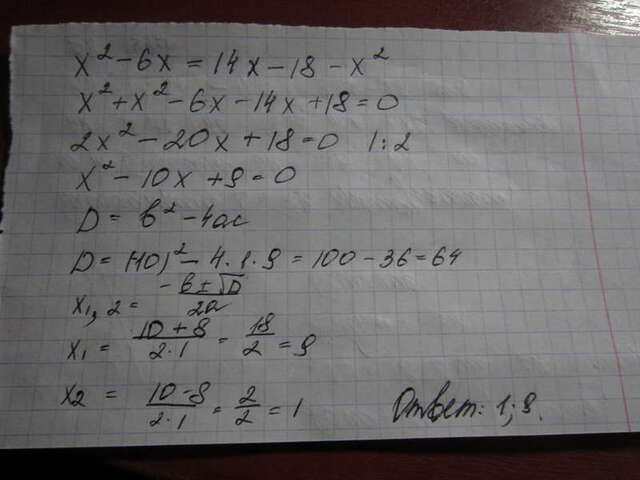 x² - 6x = 14x - 18 - x²
x² + x² - 6x - 14x + 18 = 0
2x² - 20x + 18 = 0 |:2
x² - 10x + 9 = 0
D = b² - 4ac
D = (-10)² - 4·1·9 = 100 - 36 = 64
x₁,₂ = (-b ± √D)/2a
x₁ = (10 + 8)/(2·1) = 18/2 = 9
x₂ = (10 - 8)/(2·1) = 2/2 = 1
Ответ: 1; 9.